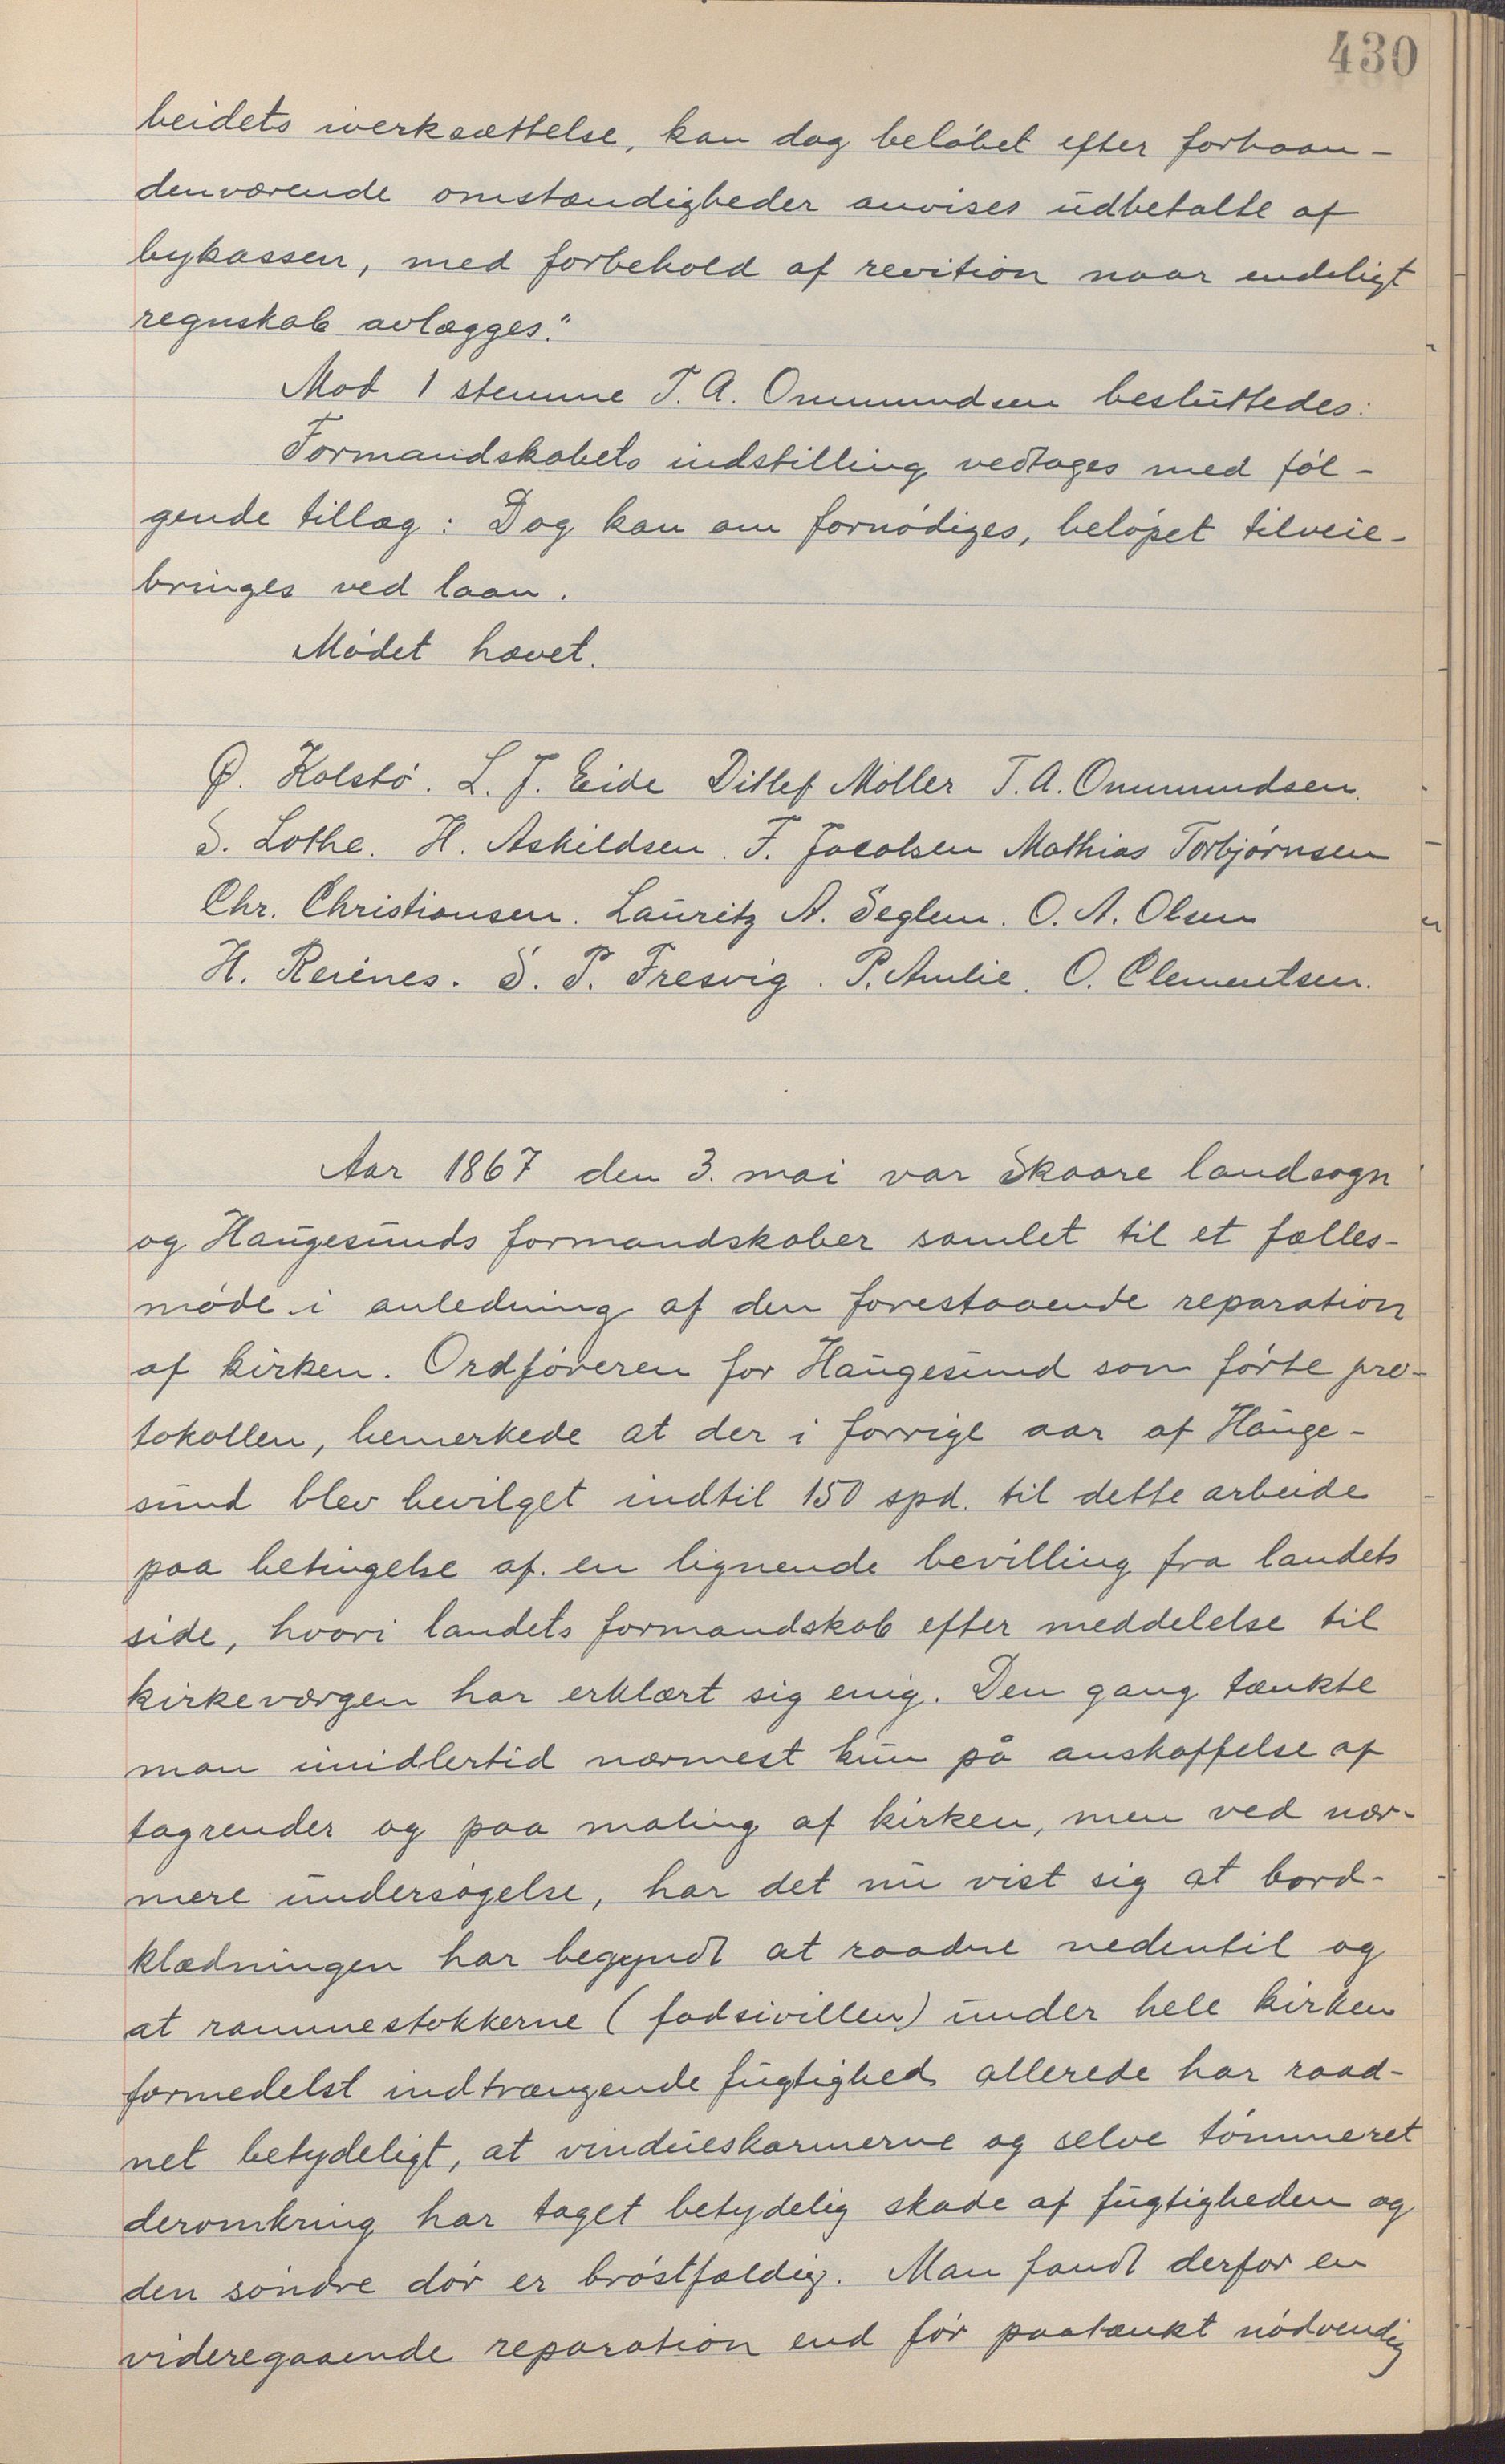 430
beidets iverksættelse, kan dog beløbet efter forhaan-
denværende omstændigheder anvises udbetalte af
bykassen, med forbehold af revition naar endeligt
regnskab avlægges."
Mod 1 stemme T. A. Ommundsen besluttedes:
Formandskabets indstilling vedtages med føl-
gende tillæg: Dog kan om fornødiges, beløpet tilveie-
bringes ved laan.
Mødet hævet.
Ø. Kolstø. L. J. Eide Ditlef Møller T. A. Ommundsen.
S. Lothe. H. Askildsen. F. Jacobsen Mathias Torbjørnsen
Chr. Christiansen. Lauritz A. Seglem. O. A. Olsen
H. Reines. S. P. Fresvig. P. Amlie. O. Clementsen.
Aar 1867 den 3. mai var Skaare landsogn
og Haugesunds formandskaber samlet til et fælles-
møde i anledning af den forestaaende reparation
af kirken. Ordføreren for Haugesund som førte pro-
tokollen, bemerkede at der i forrige aar af Hauge-
sund blev bevilget indtil 150 spd. til dette arbeide
paa betingelse af en lignende bevilling fra landets
side, hvori landets formandskab efter meddelelse til
kirkeværgen har erklært sig enig. Den gang tænkte
man imidlertid nærmest kun på anskaffelse af
tagrender og paa maling af kirken, men ved nær-
mere undersøgelse, har det nu vist sig at bord-
klædningen har begyndt at raadne nedentil og
at rammestokkerne (fodsivillen) under hele kirken
formedelst indtrængende fugtighed allerede har raad-
net betydeligt, at vindueskarmerne og selve tømmeret
deromkring har taget betydelig skade af fugtigheden og
den søndre dør er brøstfældig. Man fandt derfor en
videregaaende reparation end før paatænkt nødvendig